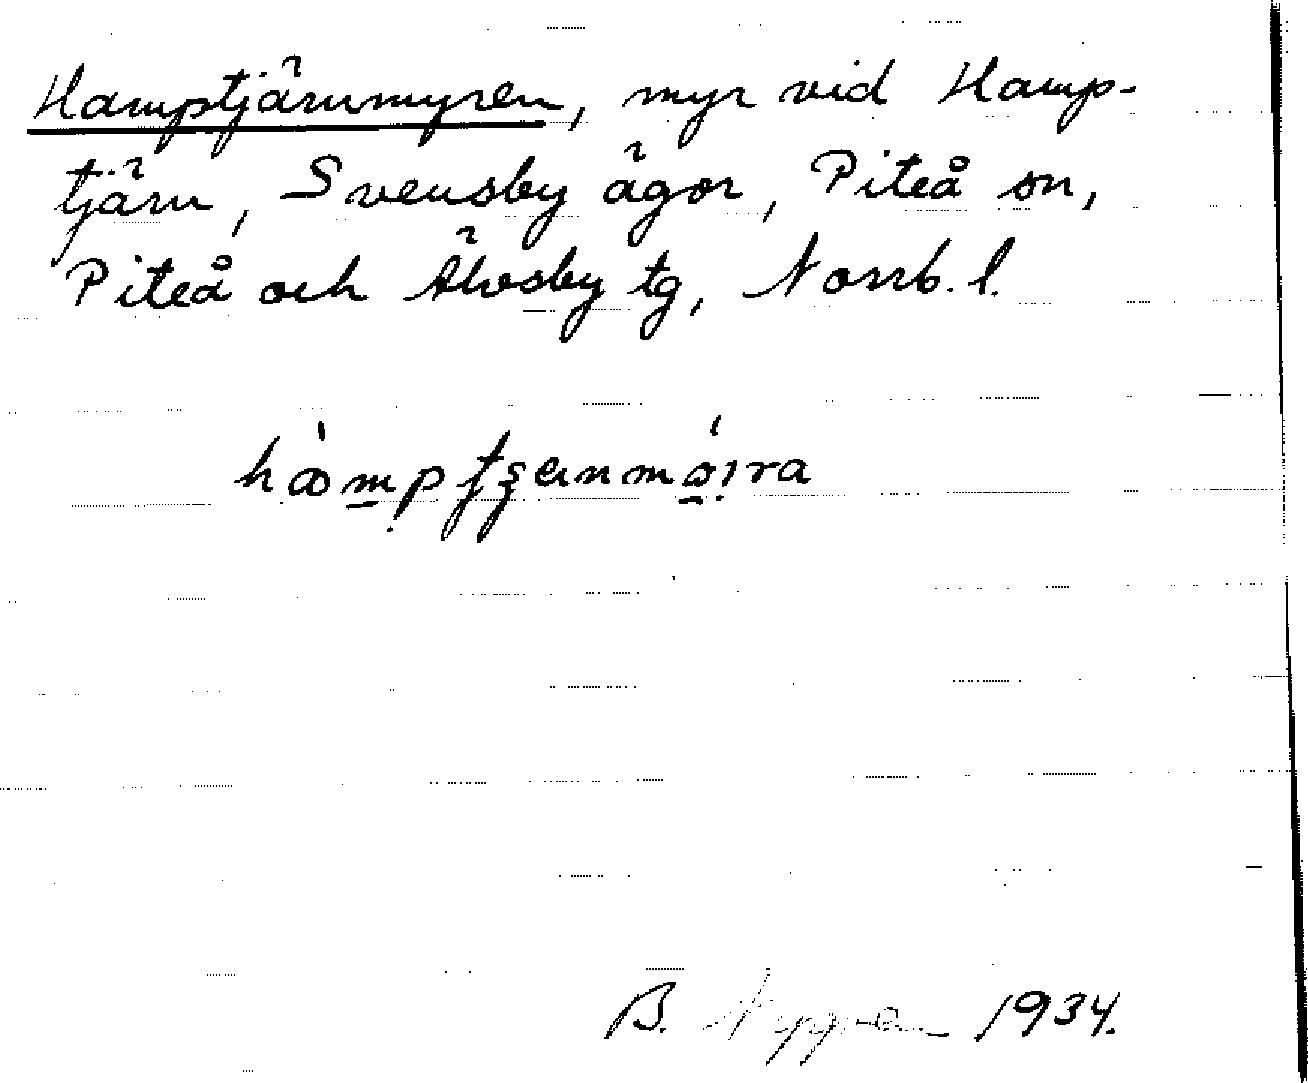 Hamptjärnmyren, myr vid Hamp-
tjärn, Svensby ägor, Piteå sn,
Piteå och Älvsby tg, Norrb. l.
B. 1934.